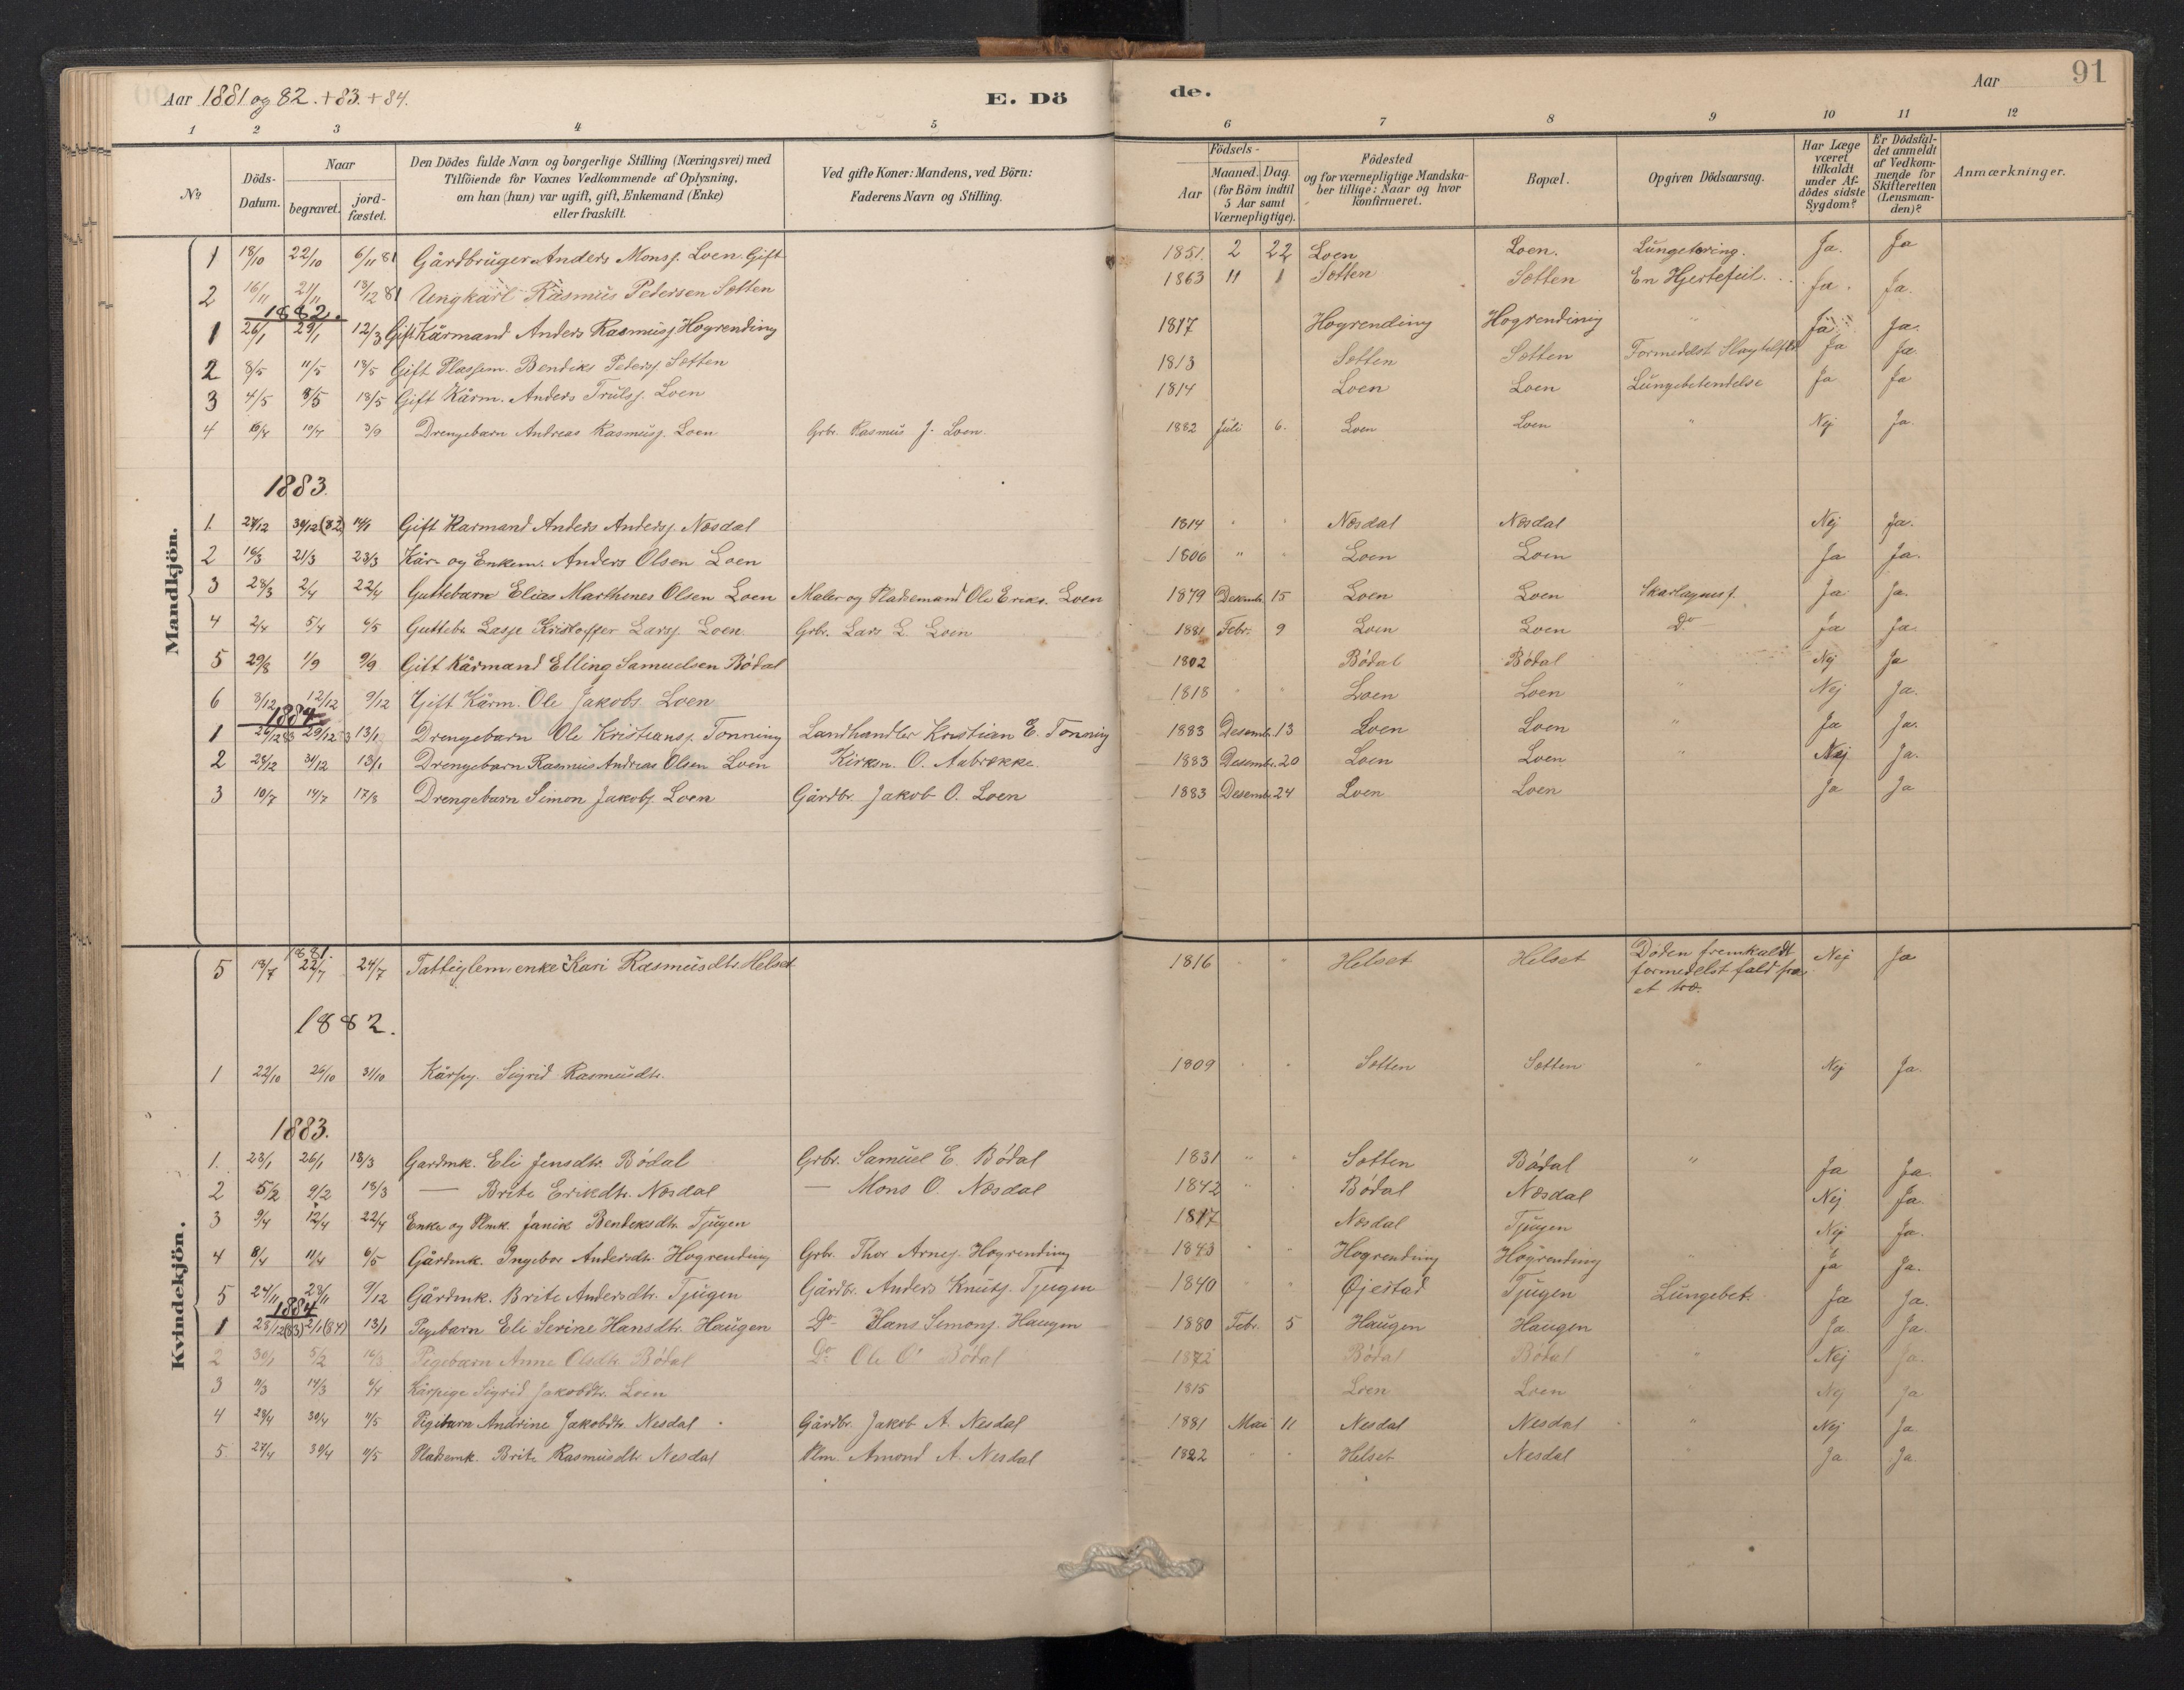 Aar 1881 og 82. + 83. + 84. E. Dö de. Aar 91
1 2 3 4 5 6 7 8 9 10 11 12
No Döds-Datum. Naar begravet. jord-fæstet. Den Dödes fulde Navn og borgerlige Stilling (Næringsvei) med Tilföiende for Voxnes Vedkommende af Oplysning, om han (hun) var ugift, gift, Enkemand (Enke) eller fraskilt. Ved gifte Koner: Mandens, ved Börn: Faderens Navn og Stilling. Födsels- Aar Maaned. Dag. (for Börn indtil 5 Aar samt Værnepligtige). Födested og for værnepligtige Mandskaber tillige: Naar og hvor konfirmeret. Bopæl. Opgiven Dödsaarsag. Har Læge været tilkaldt under Afdödes sidste Sygdom? Er Dödsfaldet anmeldt af Vedkommende for Skifteretten (Lensmanden)? Anmærkninger.
Mandkjön.
1 18/10 22/10 6/11 81 Gårdbruger Anders Monsj. Loen. Gift 1851. 2 22 Loen Loen. Lungetæring. Ja. Ja
2 16/11 21/11 13/12 81 Ungkarl Rasmus Petersen Sætten 1863 11 1 Sætten Sætten En Hjertefeil. Ja. Ja.
1882.
1 26/1 29/1 12/3 Gift Kårmand Anders Rasmusj. Hogrending 1817 Hogrending Hogrending " Ja Ja.
2 8/5 11/5 18/5 Gift Plassem. Bendiks Pedersj. Sætten 1813 Sætten Sætten Formedelst Ja Ja.
3 4/5 8/5 18/5 Gift Kårm. Anders Trulsj. Loen 1814 Loen Loen Lungebetendelse Ja Ja
4 3/9 Drengebarn Andreas Rasmusj. Loen Grbr. Rasmus J. Loen. 1882 Juli 6. Loen Loen " Nej Ja.
1883.
1. 27/12 30/12 (82) 14/1 Gift Karmand Anders Andersj. Næsdal 1814 Næsdal Næsdal Nej Ja.
2 16/3 21/3 23/3 Kår- og Enkem. Anders Olsen Loen 1806 " Loen Loen Ja Ja.
3 28/3 2/4 22/4 Guttebarn Elias Marthenes Olsen Loen Maler og Pladsemand Ole Eriks. Loen 1879 Desemb. 15 Loen Loen Skarlagensf. Ja Ja.
4 2/4 5/4 6/5 Guttebr. Lasse Kristoffer Larsj. Loen. Grbr. Lars L. Loen 1881 Febr. 9 Loen Loen Do Ja Ja.
5 29/8 1/9 9/9 Gift Kårmand Elling Samuelsen Bødal 1802 Bødal Bødal Nej Ja
6 3/12 12/12 9/12 Gift Kårm. Ole Jakobs. Loen 1818 Loen Loen " Nej Ja.
1884
1 26/12 83 29/12 83 13/1 Drengebarn Ole Kristiansj. Tonning Landhandler Kristian E. Tonning 1883 Desemb. 13 Loen Loen " Ja Ja.
2 28/12 31/12 13/1 Drengebarn Rasmus Andreas Olsen Loen Kirksn. O. Aabrekke. 1883 Desemb. 20 Loen Loen " Nej Ja.
3 10/7 14/7 17/8 Drengebarn Simon Jakobj. Loen Gårdbr. Jakob O. Loen 1883 Desemb. 24 Loen Loen Ja Ja
Kvindekjön.
1881.
5 18/7 22/7 24/7 Fattiglem enke Kari Rasmusdtr. Helset 1816 Helset Helset Døden fremkaldt formedelst fald fra et træ. Nej Ja
1882.
1 22/10 26/10 31/10 Kårpg. Sigrid Rasmusdtr. 1809 Sætten Sætten " Nej Ja.
1883.
1. 23/1 26/1 18/3 Gardmk. Eli Jensdtr. Bødal Grbr. Samuel E. Bødal 1831 " Sætten Bødal " Ja Ja.
2 5/2 9/2 18/3 — Brite Erikdtr. Næsdal — Mons O. Næsdal 1842 " Bødal Næsdal Nej Ja.
3 9/4 12/4 22/4 Enke og Plmk. Janik Bendiksdtr. Tjugen 1817 Næsdal Tjugen Nej Ja.
4 8/4 11/4 6/5 Gårdmk. Ingebor Andersdtr. Hogrending Grbr. Thor Arnesj. Hogrending 1843 Hogrending Hogrending " Ja Ja.
5 24/11 28/11 9/12 Gårdmk. Brite Andersdtr. Tjugen Gårdbr. Anders Knutsj. Tjugen 1840 Øjestad Tjugen Lungebet. Ja Ja.
1884
1 28/12 (83) 2/1 (84) 13/1 Pigebarn Eli Serine Hansdtr. Haugen Do Hans Simonsj. Haugen 1880 Febr. 5 Haugen Haugen Ja. Ja.
2 30/1 5/2 16/3 Pigebarn Anne Olsdtr. Bødal Do Ole O. Bødal 1872 Bødal Bødal " Nej Ja.
3 11/3 14/3 6/4 Kårpige Sigrid Jakobdtr. Loen 1815 Loen Loen Nej Ja
4 28/4 30/4 11/5 Pigebarn Andrine Jakobdtr. Nesdal Gårdbr. Jakob A. Nesdal 1881 Mai 11 Nesdal Nesdal " Nej Ja
5. 27/4 30/4 11/5 Pladsemk. Brite Rasmusdtr. Nesdal Plm. Amond A. Nesdal 1822 Helset Nesdal Ja Ja